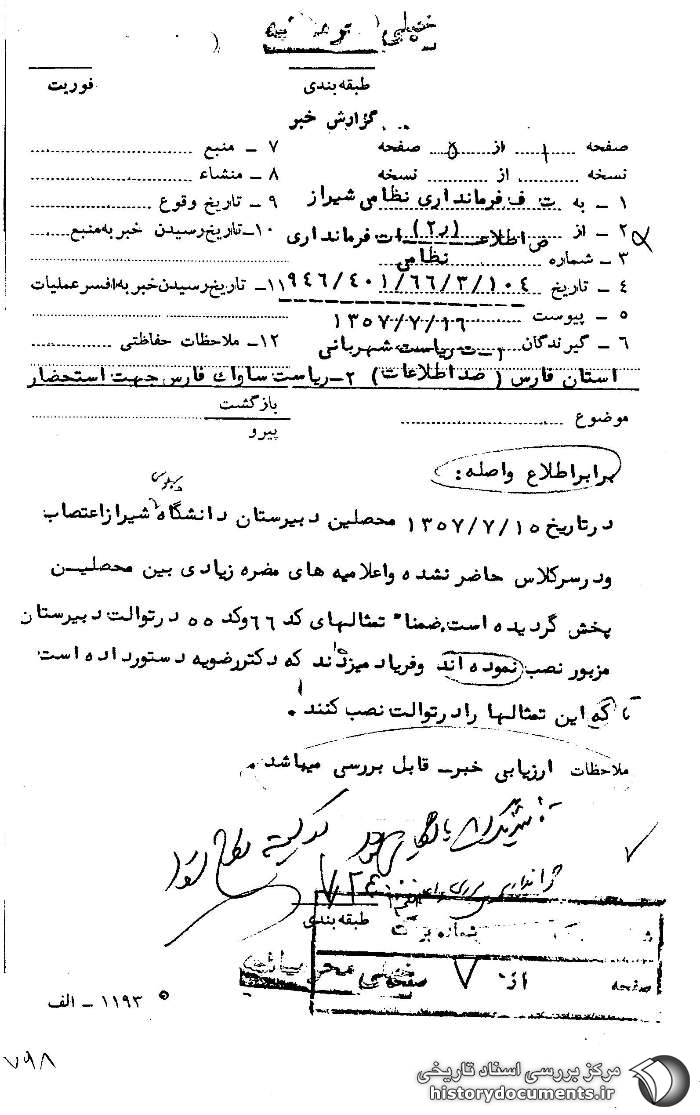 خیلی
طبقه‌بندی
فوریت
گزارش خبر
صفحه ۱ از ۵ صفحه
نسخه از نسخه
۱ ـ به ت ف فرمانداری نظامی شیراز
۲ ـ از ض اطلاعـــات فرمانداری (ر۲)
نظامی
۳ ـ شماره
۴ ـ تاریخ ۹۴۶/۴۰۱/۶۶/۳/۱۰۴
۵ ـ پیوست ۱۳۵۷/۷/۱۶
۶ ـ گیرندگان ۱ـ ت ریاست شهربانی
۷ ـ منبع
۸ ـ منشاء
۹ ـ تاریخ وقوع
۱۰ـ تاریخ رسیدن خبر به منبع
۱۱ـ تاریخ رسیدن خبر به افسر عملیات
۱۲ـ ملاحظات حفاظتی
استان فارس (ضد اطلاعات) ۲ـ ریاست ساواک فارس جهت استحضار
موضوع
بازگشت
پیرو
برابر اطلاع واصله:
در تاریخ ۱۳۵۷/۷/۱۵ محصلین دبیرستان دانشگاه شیراز اعتصاب
و در سر کلاس حاضر نشده و اعلامیه های مضره زیادی بین محصلیـن
پخش گردیده است. ضمنا" تمثالهای کد ۶۶ و کد ۵۵ در توالت دبیرستان
مزبور نصب نموده اند و فریاد میزدند که دکتر رضویه دستور داده است
تا که این تمثالها را در توالت نصب کنند.
ملاحظات ارزیابی خبر ـ قابل بررسی میباشد.
طبقه‌بندی
شماره
صفحه ۷ از
خیلی محرمانه
۱۱۹۳ ـ الف
۷۹۸
مرکز بررسی اسناد تاریخی
historydocuments.ir